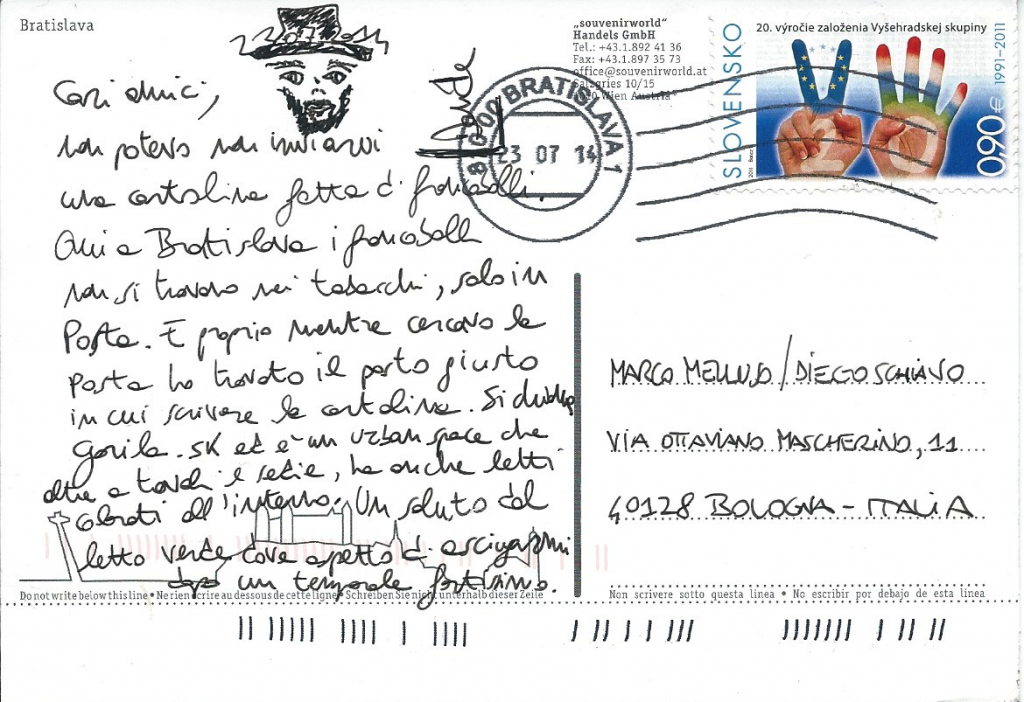 Bratislava
22 07 2014
Cari amici,
non potevo non inviarvi
una cartolina fatta di francobolli.
Qui a Bratislava i francobolli
non si trovano nei tabacchi, solo in
Posta. E proprio mentre cercavo la
Posta ho trovato il posto giusto
in cui scrivere la cartolina. Si chiama
Gorila.sk ed è un urban space che
oltre a tavoli e sedie, ha anche letti
colorati all'interno. Un saluto dal
letto verde dove aspetto di asciugarmi
dopo un temporale fortissimo.
Do not write below this line • Ne rien écrire au dessous de cette ligne • Schreiben Sie nicht unterhalb dieser Zeile
„souvenirworld"
Handels GmbH
Tel.: +43.1.892 41 36
Fax: +43.1.897 35 73
office@souvenirworld.at
Salzgries 10/15
Wien Austria
810 00 BRATISLAVA 1
23 07 14
20. výročie založenia Vyšehradskej skupiny
SLOVENSKO
1991-2011
0,90 €
2011
MARCO MELLUSO/DIEGO SCHIAVO
VIA OTTAVIANO MASCHERINO, 11
40128 BOLOGNA - ITALIA
Non scrivere sotto questa linea • No escribir por debajo de esta linea